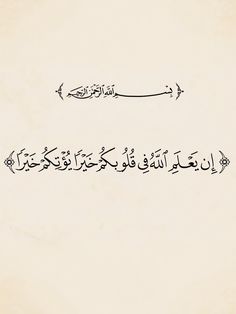 ﴿ بِسْمِ ٱللَّهِ ٱلرَّحْمَٰنِ ٱلرَّحِيمِ ﴾
﴿ إِن يَعْلَمِ ٱللَّهُ فِى قُلُوبِكُمْ خَيْرًا يُؤْتِكُمْ خَيْرًا ﴾